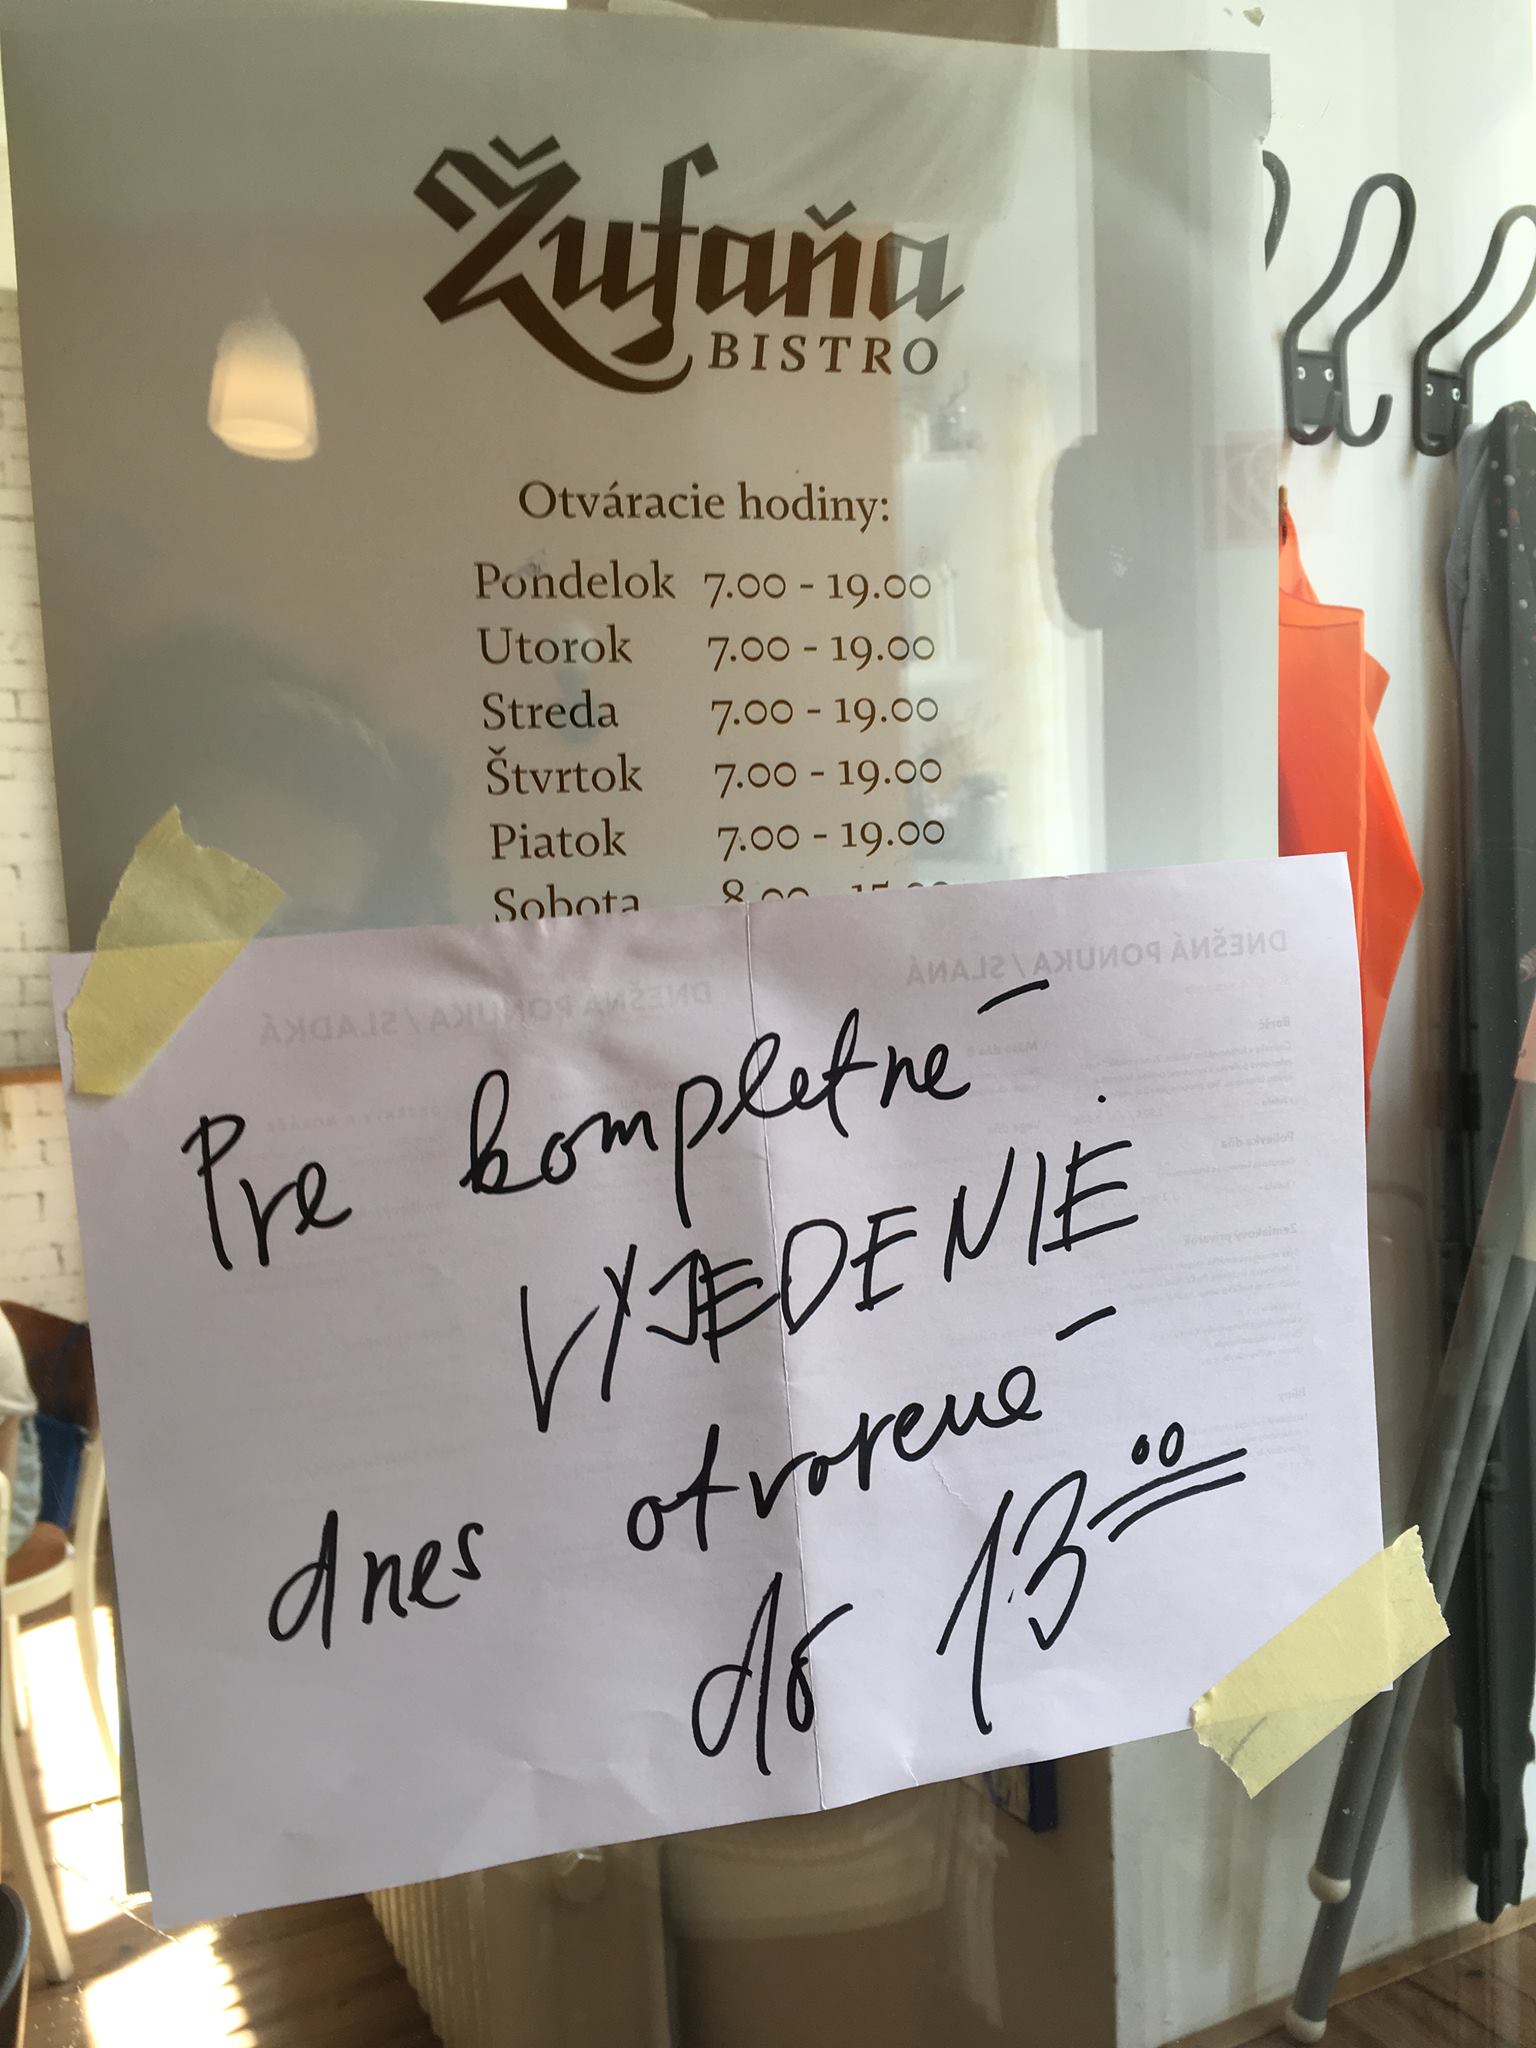 Žufaňa
BISTRO
Otváracie hodiny:
Pondelok 7.00 - 19.00
Utorok 7.00 - 19.00
Streda 7.00 - 19.00
Štvrtok 7.00 - 19.00
Piatok 7.00 - 19.00
Sobota 8.00 - 15.00
DNEŠNÁ PONUKA / SLADKÁ
DNEŠNÁ PONUKA / SLANÁ
Pre kompletné
VYJEDENIE
dnes otvorené
do 13⁰⁰